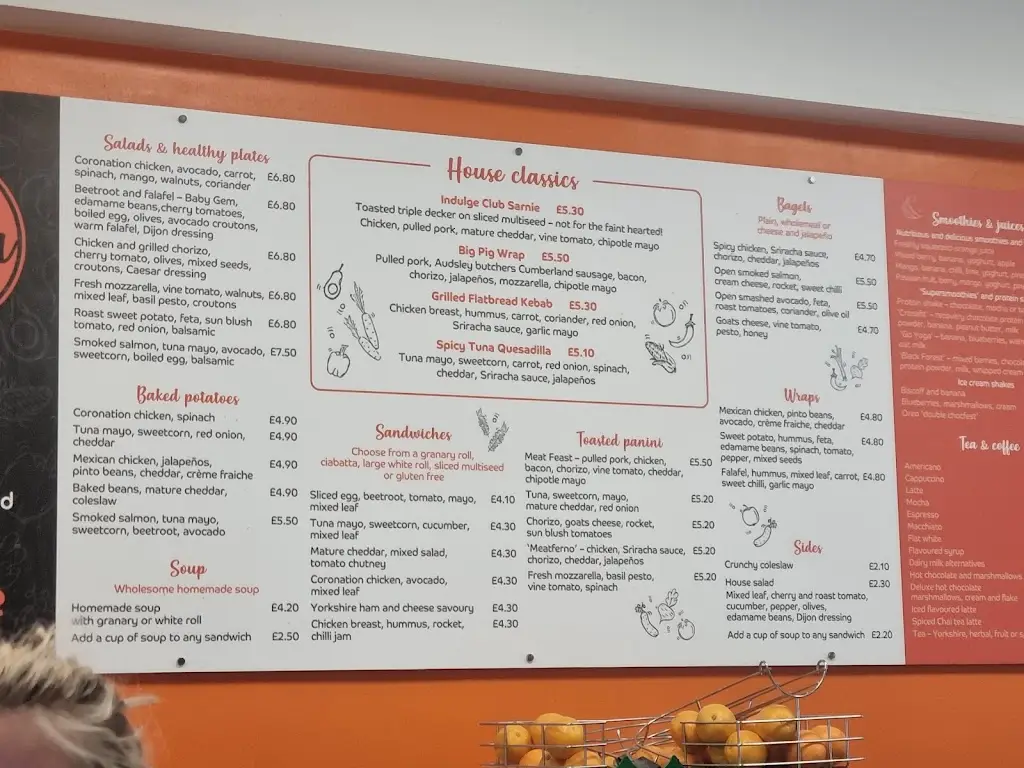 Salads & healthy plates
Coronation chicken, avocado, carrot, £6.80
spinach, mango, walnuts, coriander
Beetroot and falafel – Baby Gem, £6.80
edamame beans,cherry tomatoes,
boiled egg, olives, avocado croutons,
warm falafel, Dijon dressing
Chicken and grilled chorizo, £6.80
cherry tomato, olives, mixed seeds,
croutons, Caesar dressing
Fresh mozzarella, vine tomato, walnuts, £6.80
mixed leaf, basil pesto, croutons
Roast sweet potato, feta, sun blush £6.80
tomato, red onion, balsamic
Smoked salmon, tuna mayo, avocado, £7.50
sweetcorn, boiled egg, balsamic
Baked potatoes
Coronation chicken, spinach £4.90
Tuna mayo, sweetcorn, red onion, £4.90
cheddar
Mexican chicken, jalapeños, £4.90
pinto beans, cheddar, crème fraiche
Baked beans, mature cheddar, £4.90
coleslaw
Smoked salmon, tuna mayo, £5.50
sweetcorn, beetroot, avocado
Soup
Wholesome homemade soup
Homemade soup £4.20
with granary or white roll
Add a cup of soup to any sandwich £2.50
House classics
Indulge Club Sarnie £5.30
Toasted triple decker on sliced multiseed – not for the faint hearted!
Chicken, pulled pork, mature cheddar, vine tomato, chipotle mayo
Big Pig Wrap £5.50
Pulled pork, Audsley butchers Cumberland sausage, bacon,
chorizo, jalapeños, mozzarella, chipotle mayo
Grilled Flatbread Kebab £5.30
Chicken breast, hummus, carrot, coriander, red onion,
Sriracha sauce, garlic mayo
Spicy Tuna Quesadilla £5.10
Tuna mayo, sweetcorn, carrot, red onion, spinach,
cheddar, Sriracha sauce, jalapeños
Sandwiches
Choose from a granary roll,
ciabatta, large white roll, sliced multiseed
or gluten free
Sliced egg, beetroot, tomato, mayo, £4.10
mixed leaf
Tuna mayo, sweetcorn, cucumber, £4.30
mixed leaf
Mature cheddar, mixed salad, £4.30
tomato chutney
Coronation chicken, avocado, £4.30
mixed leaf
Yorkshire ham and cheese savoury £4.30
Chicken breast, hummus, rocket, £4.30
chilli jam
Toasted panini
Meat Feast – pulled pork, chicken, £5.50
bacon, chorizo, vine tomato, cheddar,
chipotle mayo
Tuna, sweetcorn, mayo, £5.20
mature cheddar, red onion
Chorizo, goats cheese, rocket, £5.20
sun blush tomatoes
'Meatferno' – chicken, Sriracha sauce, £5.20
chorizo, cheddar, jalapeños
Fresh mozzarella, basil pesto, £5.20
vine tomato, spinach
Bagels
Plain, wholemeal or
cheese and jalapeño
Spicy chicken, Sriracha sauce, £4.70
chorizo, cheddar, jalapeños
Open smoked salmon, £5.50
cream cheese, rocket, sweet chilli
Open smashed avocado, feta, £5.50
roast tomatoes, coriander, olive oil
Goats cheese, vine tomato, £4.70
pesto, honey
Wraps
Mexican chicken, pinto beans, £4.80
avocado, crème fraiche, cheddar
Sweet potato, hummus, feta, £4.80
edamame beans, spinach, tomato,
pepper, mixed seeds
Falafel, hummus, mixed leaf, carrot, £4.80
sweet chilli, garlic mayo
Sides
Crunchy coleslaw £2.10
House salad £2.30
Mixed leaf, cherry and roast tomato,
cucumber, pepper, olives,
edamame beans, Dijon dressing
Add a cup of soup to any sandwich £2.20
Smoothies & juices
Nutritious and delicious smoothies and
Freshly squeezed orange juice
Mixed berry, banana, yoghurt, apple
'Supersmoothies' and protein
Protein shake – chocolate, mocha or
powder, banana, peanut butter, milk
oat milk
'Black Forest' – mixed berries,
protein powder, milk, whipped cream
Ice cream shakes
Biscoff and banana
Blueberries, marshmallows, cream
Oreo 'double chocfest'
Tea & coffee
Americano
Cappuccino
Latte
Mocha
Espresso
Macchiato
Flat white
Flavoured syrup
Dairy milk alternatives
Hot chocolate and marshmallows
Deluxe hot chocolate
marshmallows, cream and flake
Iced flavoured latte
Spiced Chai tea latte
Tea – Yorkshire, herbal, fruit or